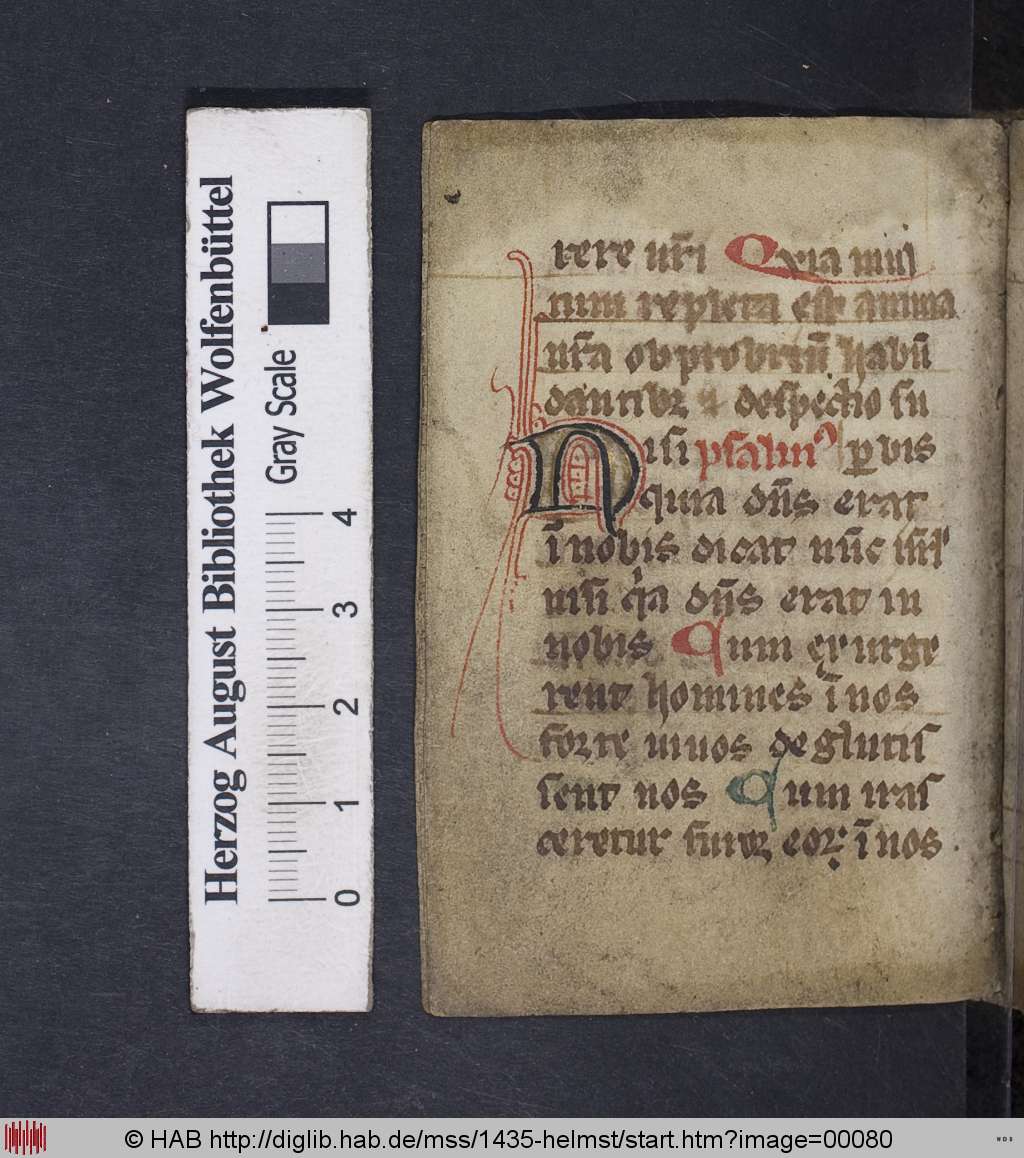 Herzog August Bibliothek Wolfenbüttel
Gray Scale
0 1 2 3 4
rere nr̄i Quia mul
tum repleta est anima
nr̄a obprobriū habū
dantibꝫ ⁊ despectio su
Nisi psalmꝰ ꝑbis
quia dn̄s erat
ī nobis dicat nūc isrl'
nisi qͣa dn̄s erat in
nobis Cum exurge
rent homines ī nos
forte viuos deglutis
sent nos Cum iras
ceretur furor eoꝝ ī nos
© HAB http://diglib.hab.de/mss/1435-helmst/start.htm?image=00080